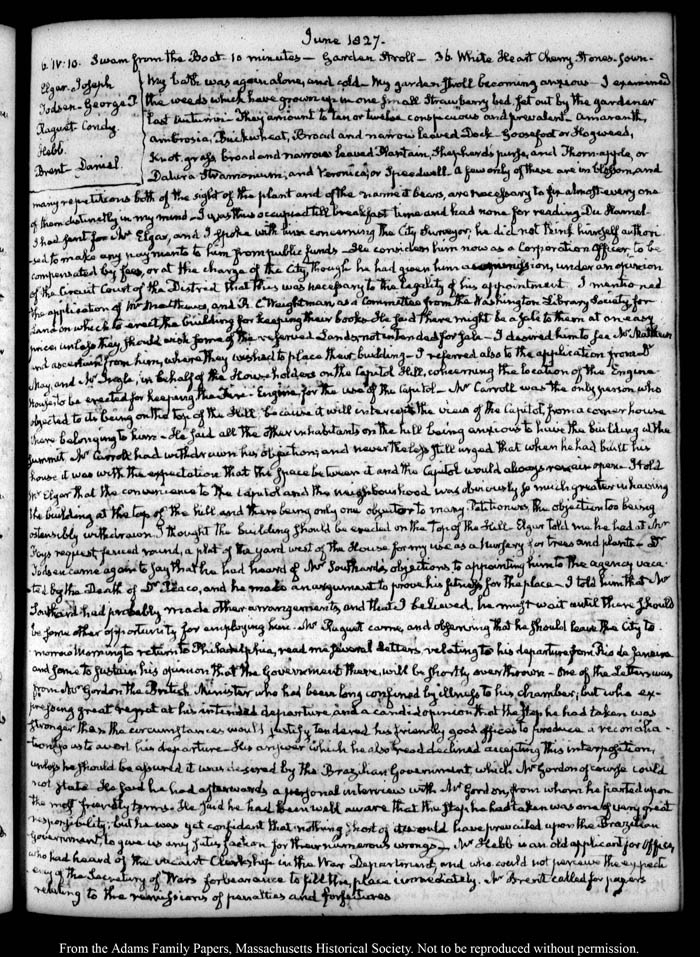 June 1827.
6. IV:10. Swam from the Boat 10 minutes — Garden Stroll — 36 White Heart Cherry Stones sown.
Elgar. Joseph
Todsen. George P.
Raguet. Condy.
Hebb.
Brent. Daniel
My bath was again alone, and cold. My garden stroll becoming anxious — I examined
the weeds which have grown up in one small Strawberry bed set out by the gardener
last Autumn — They amount to ten or twelve conspicuous and prevalent — Amaranth,
Ambrosia, Buckwheat, Broad and narrow leaved Dock — Goosefoot or Hogweed,
Knot grass, broad and narrow leaved Plantain, Shepherd's purse, and Thorn apple, or
Datura Stramonium; and Veronica, or Speedwell. A few only of these are in blossom, and
many repetitions both of the sight of the plant and of the name it bears, are necessary to fix almost every one
of them distinctly in my mind — I was thus occupied till breakfast time and had none for reading Du Hamel.
I had sent for Mr Elgar, and I spoke with him concerning the City Surveyor; he did not think himself author-
ised to make any payments to him from public funds — He considers him now as a Corporation Officer, to be
compensated by fees, or at the charge of the City, though he had given him a commission, under an opinion
of the Circuit Court of the District that this was necessary to the legality of his appointment. I mentioned
the application of Mr Matthews, and R. C. Weightman as a Committee from the Washington Library Society for
land on which to erect the building for keeping their books. He said there might be a sale to them at an easy
price, unless they should wish for one of the reserved Lands not intended for sale — I desired him to see Mr Matthews
and ascertain from him, where they wished to place their building — I referred also to the application from Dr
May, and Mr Ingle, in behalf of the Householders on the Capitol Hill, concerning the location of the Engine
House to be erected for keeping the Fire-Engine, for the use of the Capitol — Mr Carroll was the only person who
objected to its being on the top of the Hill because it will intercept the view of the Capitol, from a corner house
there belonging to him — He said all the other inhabitants on the hill being anxious to have the building at the
summit Mr Carroll had withdrawn his objection; and nevertheless still urged that when he had built his
house it was with the expectation that the space between it and the Capitol would always remain open. I told
Mr Elgar that the convenience to the Capitol and the neighbourhood was obviously so much greater in having
the building at the top of the hill, and there being only one objector to many Petitioners, the objection too being
ostensibly withdrawn I thought the building should be erected on the Top of the Hill. Elgar told me he had at Mr
Foy's request fenced round, a plot of the yard west of the House for my use as a Nursery for trees and plants — Dr
Todsen came again to say that he had heard of Mr Southard's objections to appointing him to the agency vaca-
ted by the Death of Dr Peaco, and he made an argument to prove his fitness for the place — I told him that Mr
Southard had probably made other arrangements, and that I believed, he must wait until there should
be some other opportunity for employing him. Mr Raguet came, and observing that he should leave the City to-
morrow Morning to return to Philadelphia, read me several Letters, relating to his departure from Rio de Janeiro
and some to sustain his opinion that the Government there, will be shortly overthrown — One of the Letters was
from Mr Gordon the British Minister who had been long confined by illness to his chamber; but who ex-
pressing great regret at his intended departure, and a candid opinion that the step he had taken was
stronger than the circumstances would justify, tendered his friendly good offices to produce a reconcilia-
tion so as to avert his departure. His answer which he also read declined accepting this interposition,
unless he should be assured it was desired by the Brazilian Government, which Mr Gordon of course could
not state. He said he had afterwards a personal interview with Mr Gordon, from whom he parted upon
the most friendly terms. He said he had been well aware that the step he had taken was one of very great
responsibility; but he was yet confident that nothing short of it would have prevailed upon the Brazilian
Government, to give us any satisfaction for their numerous wrongs — Mr Hebb is an old applicant for Office,
who had heard of the vacant Clerkship in the War Department, and who could not perceive the expedi-
ency of the Secretary of War's forbearance to fill the place immediately. Mr Brent called for papers
relating to the remissions of penalties and forfeitures
From the Adams Family Papers, Massachusetts Historical Society. Not to be reproduced without permission.